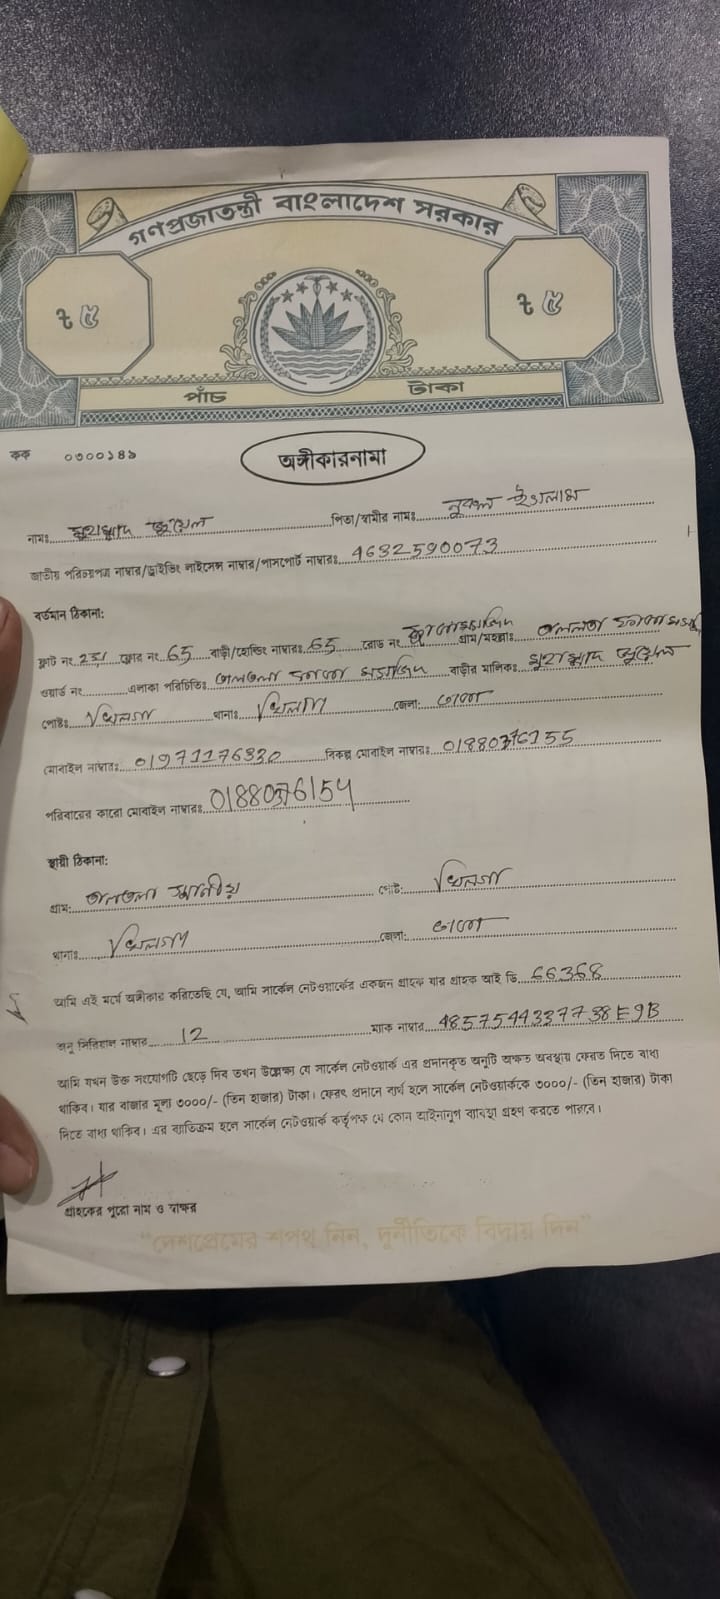 গণপ্রজাতন্ত্রী বাংলাদেশ সরকার
৳ ৫ ৳ ৫
পাঁচ টাকা
কক ০৩০০১৪৯
অঙ্গীকারনামা
নামঃ মুহাম্মাদ জুয়েল পিতা/স্বামীর নামঃ নুরুল ইসলাম
জাতীয় পরিচয়পত্র নাম্বার/ড্রাইভিং লাইসেন্স নাম্বার/পাসপোর্ট নাম্বারঃ 4632590073
বর্তমান ঠিকানা:
ফ্লাট নং ফ্লোর নং 65 বাড়ী/হোল্ডিং নাম্বারঃ 65 রোড নং গ্রাম/মহল্লাঃ
ওয়ার্ড নং এলাকা পরিচিতিঃ বাড়ীর মালিকঃ মুহাম্মাদ জুয়েল
পোষ্টঃ খিলগাঁ থানাঃ খিলগাঁ জেলা: ঢাকা
মোবাইল নাম্বারঃ 01971176330 বিকল্প মোবাইল নাম্বারঃ 01880376155
পরিবারের কারো মোবাইল নাম্বারঃ 01880376154
স্থায়ী ঠিকানা:
গ্রাম: পোষ্ট: খিলগাঁ
থানাঃ খিলগাঁ জেলা: ঢাকা
আমি এই মর্মে অঙ্গীকার করিতেছি যে, আমি সার্কেল নেটওয়ার্কের একজন গ্রাহক যার গ্রাহক আই ডি 66368
অনু সিরিয়াল নাম্বার 12 ম্যাক নাম্বার 4857544337738E9B
আমি যখন উক্ত সংযোগটি ছেড়ে দিব তখন উল্লেক্ষ্য যে সার্কেল নেটওয়ার্ক এর প্রদানকৃত অনুটি অক্ষত অবস্থায় ফেরত দিতে বাধ্য
থাকিব। যার বাজার মূল্য ৩০০০/- (তিন হাজার) টাকা। ফেরৎ প্রদানে ব্যর্থ হলে সার্কেল নেটওয়ার্ককে ৩০০০/- (তিন হাজার) টাকা
দিতে বাধ্য থাকিব। এর ব্যতিক্রম হলে সার্কেল নেটওয়ার্ক কর্তৃপক্ষ যে কোন আইনানুগ ব্যবস্থা গ্রহণ করতে পারবে।
গ্রাহকের পুরো নাম ও স্বাক্ষর
"দেশপ্রেমের শপথ নিন, দূর্নীতিকে বিদায় দিন"